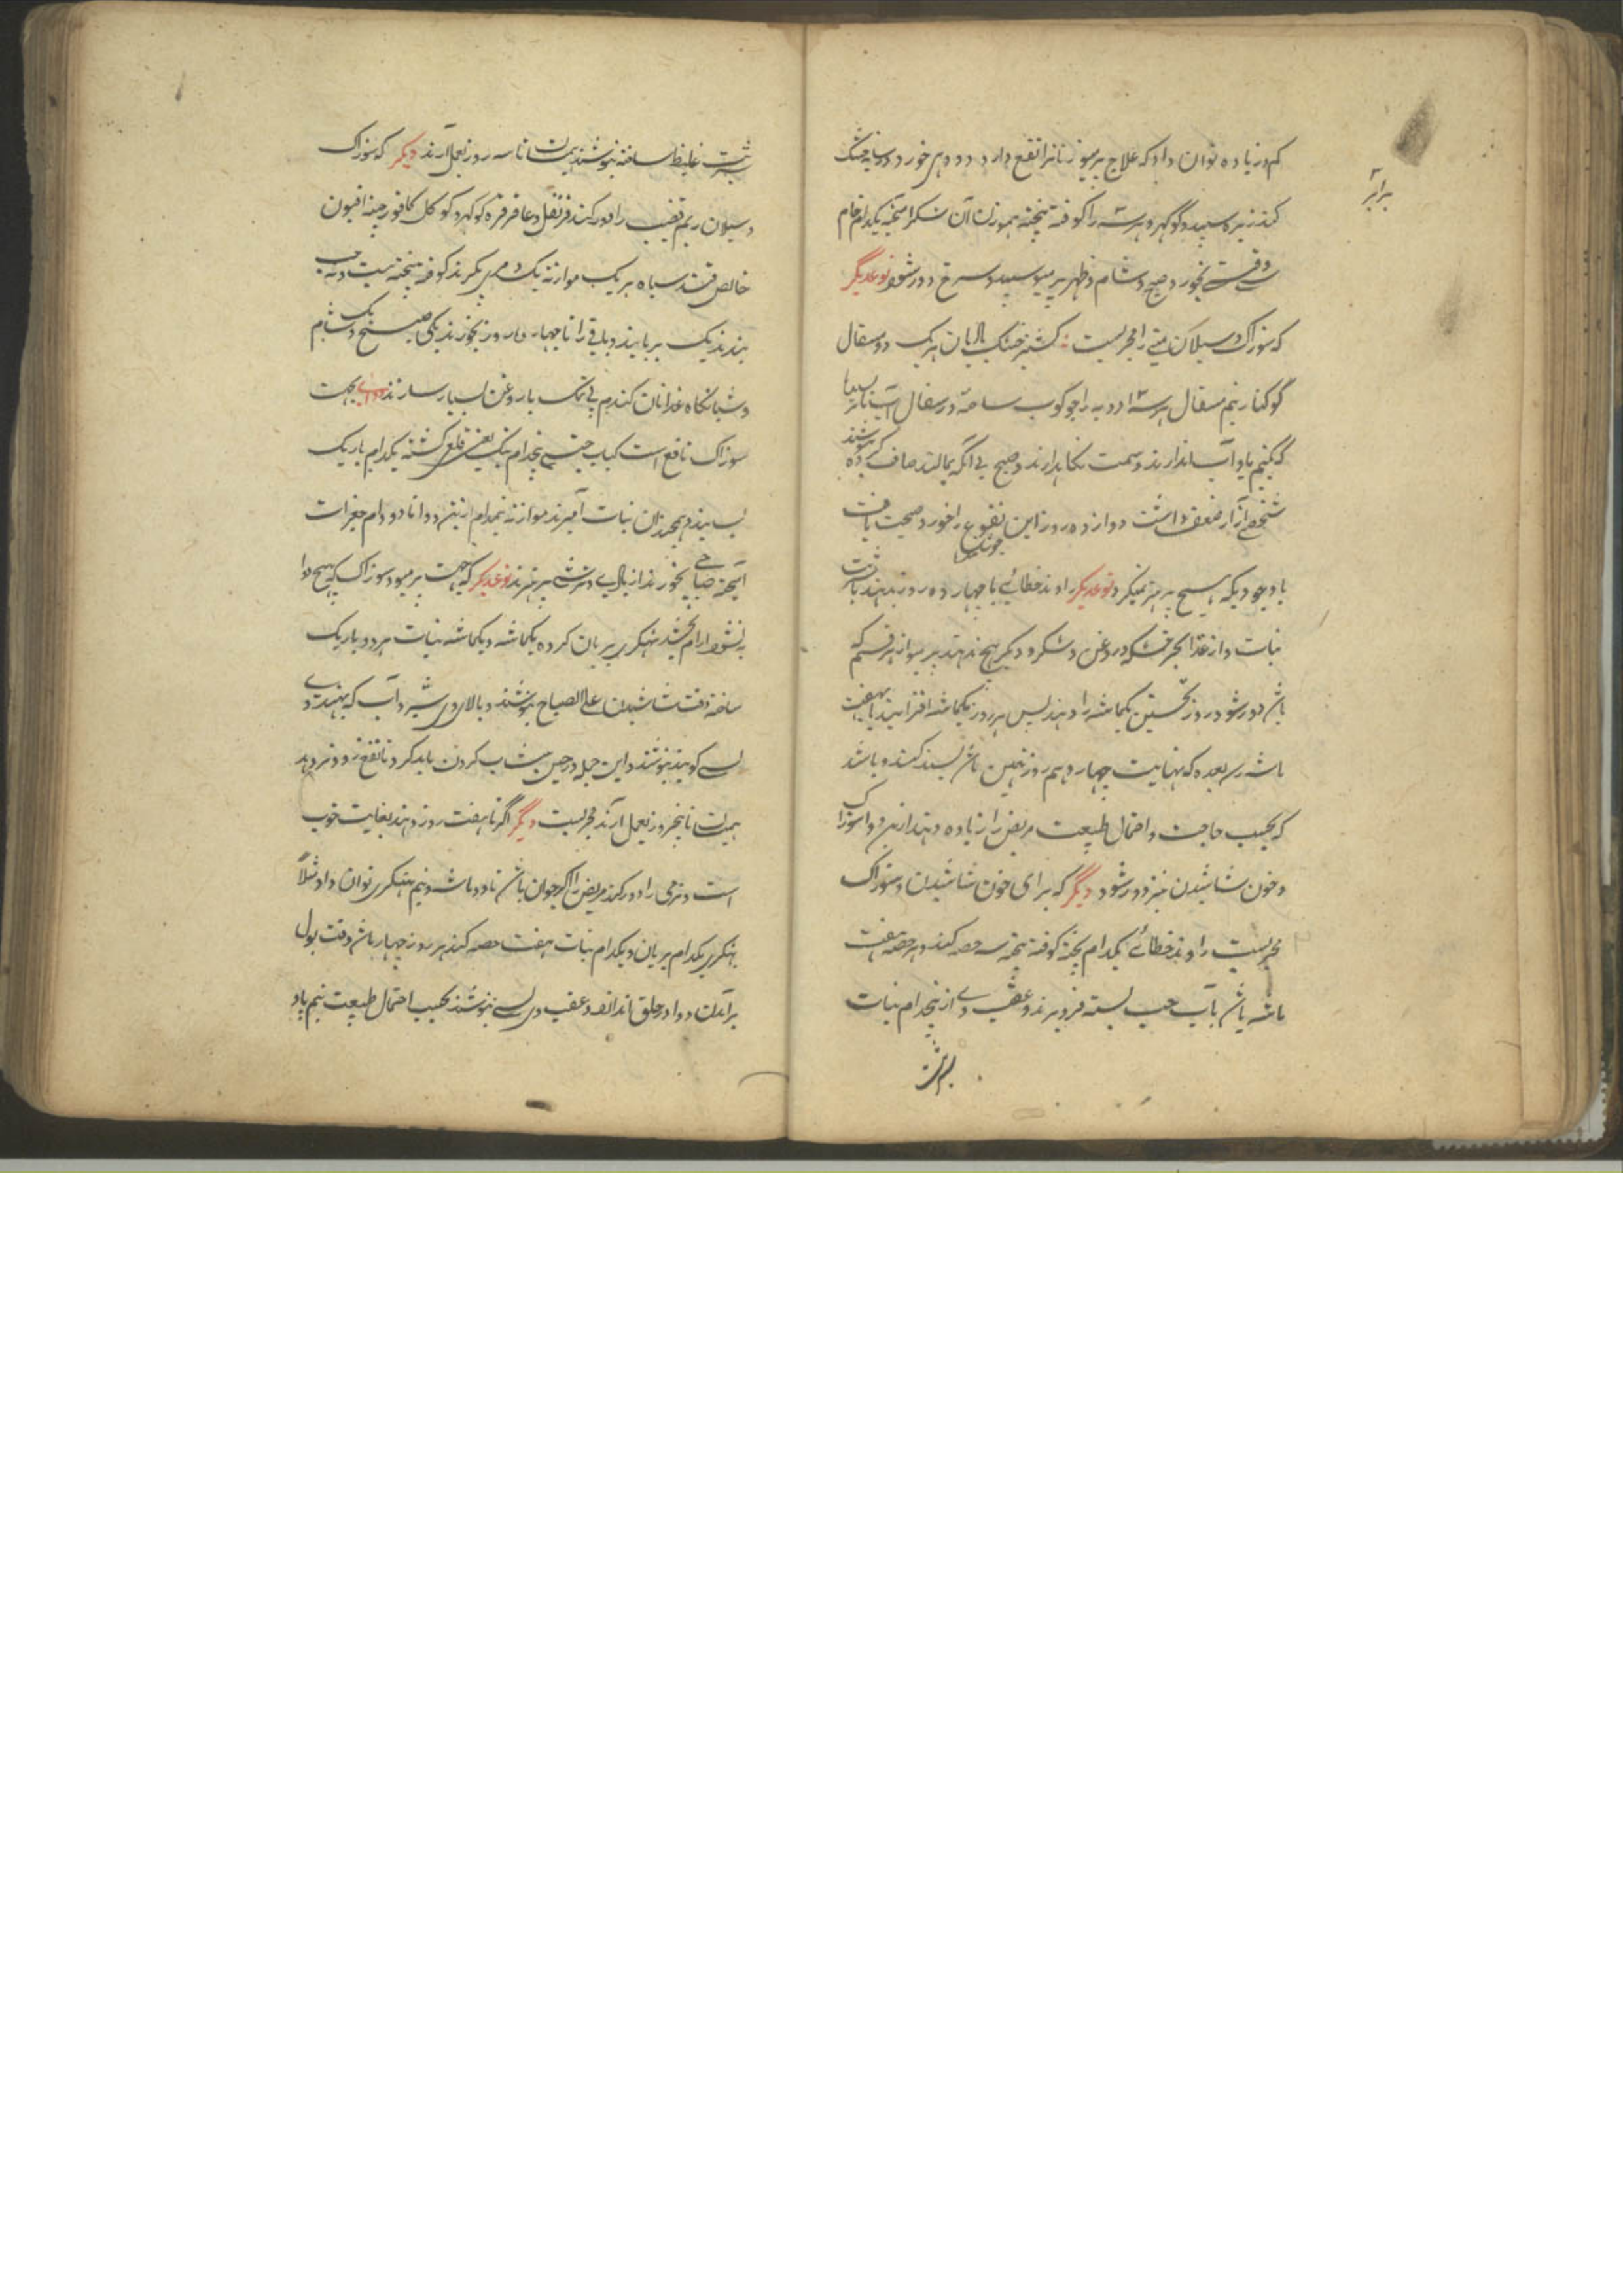 کم و زیاده توان داد که علاج پرمیو زنانرا نفع دارد و دودهی خورد و سایه خشک
کنند زیره سپید و گوگهرو هر سه را کوفته بیخته هموزن آن شکر آمیخته یکدام خام
وقت بخورد صبح و شام و ظهر پرمیو سپید و سرخ دور شود نوعدیگر
که سوزاک و سیلان منی را مجربست کشنیز خشک بالیان هریک دو مثقال
گوکنار نیم مثقال هر سه ادویه را جوکوب ساخته در سفال آب نارسیده
که نیم پاو آب اندازند و سمت نگاهدارند و صبح بی آنکه بمالند صاف کرده بنوشند
شخصی ازار ضعف داشت دوازده روز این نقوع را خورد صحت یافت
باوجودیکه هیچ پرهیز نمیکرد نوعدیگر راوند خطائی تا چهارده روز بدهند با شربت
نبات و از غذا بجز خشکه و روغن و شکر و دیگر هیچ ندهند پرمیو از هر قسم که
باشد دور شود روز نخستین یکماشه را دهند پس هر روز یکماشه افزایند تا بهفت
ماشه رسد بعده که نهایت چهاردهم روز همین ماشه بسند کنند و باشد
که بحسب حاجت و احتمال طبیعت مریض را زیاده دهند از این دوا سوزاک
و خون شاشیدن نیز دور شود دیگر که برای خون شاشیدن و سوزاک
مجربست راوند خطائی یکدام پخته کوفته بیخته سه حصه کنند و هر حصه هفت
ماشه باشد بآب حب بسته فرو برند و عقب وی از پنجدام نبات
شربت
برابر
شربت غلیظ ساخته بنوشند همینسان تا سه روز بعمل آرند دیگر که سوزاک
و سیلان ریم قضیب را دور کند قرنفل و عاقرقرحا گوکهرو گوگل کافور چینه افیون
خالص قند سیاه هر یک موازنه یک درمی بگیرند کوفته بیخته بیست و نه حب
بندند یک بربایند و باقی را تا چهارده روز بخورند یکی صبح و یک شام
و شبانگاه غذا نان گندم بی نمک با روغن بسیار سازند دوای بجهت
سوزاک نافع است کباب چینی پنجدام بنگ یعنی قلعی کشته یکدام باریک
بسایند و همچندان نبات آمیزند موازنه نیمدام ازین دوا تا دو دام جغرات
آمیخته صباحی بخورند از بادی و ترشی پرهیزند نوعدیگر که جهت پرمیو و سوزاک که بهیچ دوا
به نشود آرام بخشد پهتکری بریان کرده یکماشه و یکماشه نبات هردو باریک
ساخته وقت شاشیدن علی الصباح بنوشند و بالای وی شیر و آب که بهندی
لسی گویند بنوشند و این حیله در حین پیشاب کردن باید کرد تا نفع زود تر دهد
همینسان تا پنجروز بعمل آرند مجربست دیگر اگر تا هفت روز دهند بغایت خوب
است و نرمی را دور کند مریض را اگر جوان باشد تا دو ماشه و نیم پهتکری توان داد مثلاً
پهتکری یکدام بریان و یکدام نبات هفت حصه کنند هر روز چهار ماشه وقت بول
برآمدن دوا در حلق انداخته و عقب وی لسی بنوشند بحسب احتمال طبیعت نیم پاو